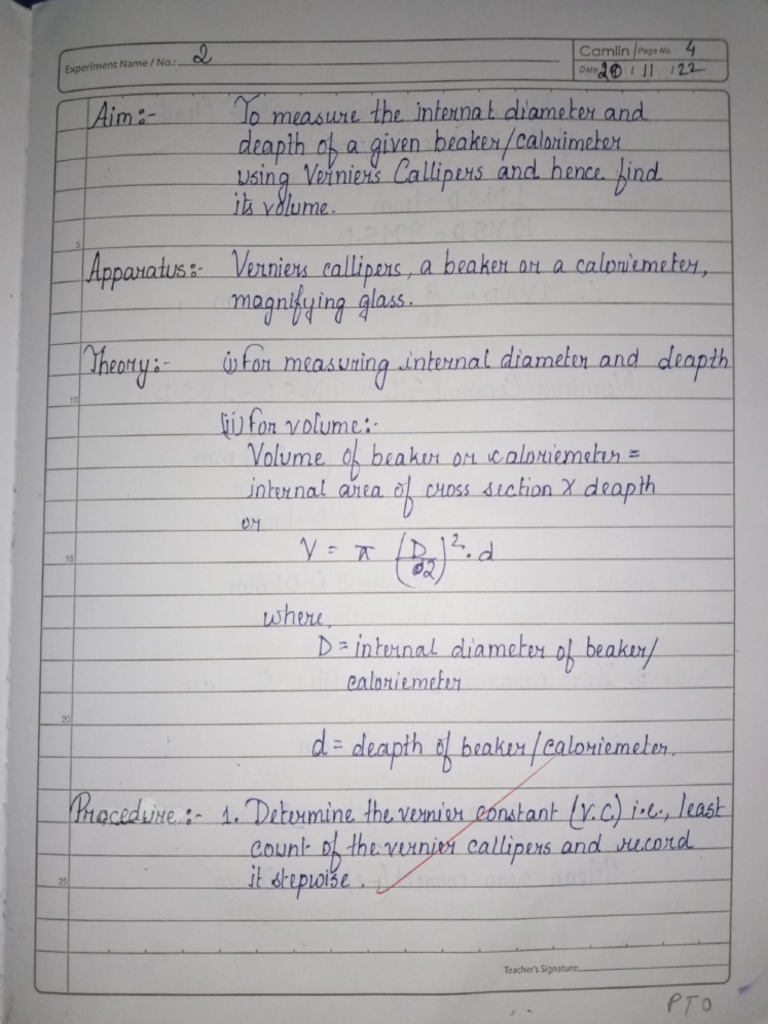 Experiment Name / No.: 2
Camlin Page No. 4
Date 20 11 22
Aim:- To measure the internal diameter and
deapth of a given beaker/calorimeter
using Verniers Callipers and hence find
its volume.
5
Apparatus:- Verniers callipers, a beaker or a caloriemeter,
magnifying glass.
Theory:- (i) For measuring internal diameter and deapth
10
(ii) For volume:-
Volume of beaker or caloriemeter =
internal area of cross section X deapth
or
V = π (D/2)². d
15
where,
D = internal diameter of beaker/
caloriemeter
20
d = deapth of beaker/caloriemeter.
Procedure:- 1. Determine the vernier constant (V.C.) i.e., least
count of the vernier callipers and record
it stepwise.
25
Teacher's Signature:
PTO